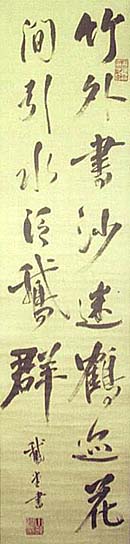 竹外書沙迷鶴迹花
間引水泛鵝群
鵞堂書